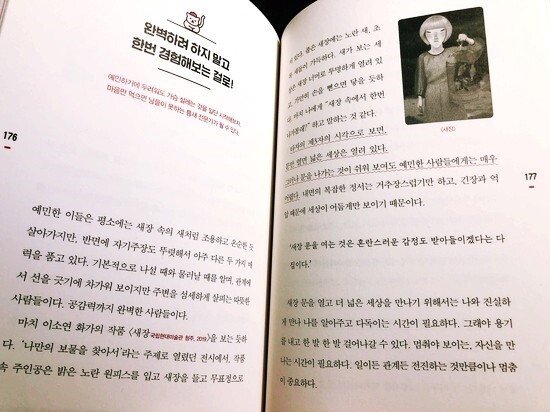 완벽하려 하지 말고
한번 경험해보는 걸로!
예민하기에 두려워도 가슴 설레는 것을 일단 시작해보자.
마음만 먹으면 남들이 못하는 틈새 전문가가 될 수 있다.
176
예민한 이들은 평소에는 새장 속의 새처럼 조용하고 온순한 듯
살아가지만, 반면에 자기주장도 뚜렷해서 아주 다른 두 가지 매
력을 품고 있다. 기본적으로 나설 때와 물러날 때를 알며, 관계에
서 선을 긋기에 차가워 보이지만 주변을 섬세하게 살피는 따뜻한
사람들이다. 공감력까지 완벽한 사람들이다.
마치 이소연 화가의 작품 〈새장 국립현대미술관 청주, 2019〉을 보는 듯하
다. '나만의 보물을 찾아서'라는 주제로 열렸던 전시에서, 작품
속 주인공은 밝은 노란 원피스를 입고 새장을 들고 무표정으로
서 있다. 좁은 새장에는 노란 새, 초
새들이 가득하다. 새가 보는 세
새장 너머로 투명하게 열려 있
가만히 손을 뻗으면 닿을 듯하
마치 나에게 "새장 속에서 한번
나가볼래?" 하고 말하는 것 같다.
의 제3자의 시각으로 보면,
문만 열면 넓은 세상은 열려 있다.
그러나 문을 나가는 것이 쉬워 보여도 예민한 사람들에게는 매우
어렵다. 내면의 복잡한 정서는 거추장스럽기만 하고, 긴장과 억
압 때문에 세상이 어둡게만 보이기 때문이다.
〈새장〉
177
'새장 문을 여는 것은 혼란스러운 감정도 받아들이겠다는 다
짐이다.'
새장 문을 열고 더 넓은 세상을 만나기 위해서는 나와 진실하
게 만나 나를 알아주고 다독이는 시간이 필요하다. 그래야 용기
를 내고 한 발 한 발 걸어나갈 수 있다. 멈춰야 보이는, 자신을 만
나는 시간이 필요하다. 일이든 관계든 전진하는 것만큼이나 멈춤
이 중요하다.